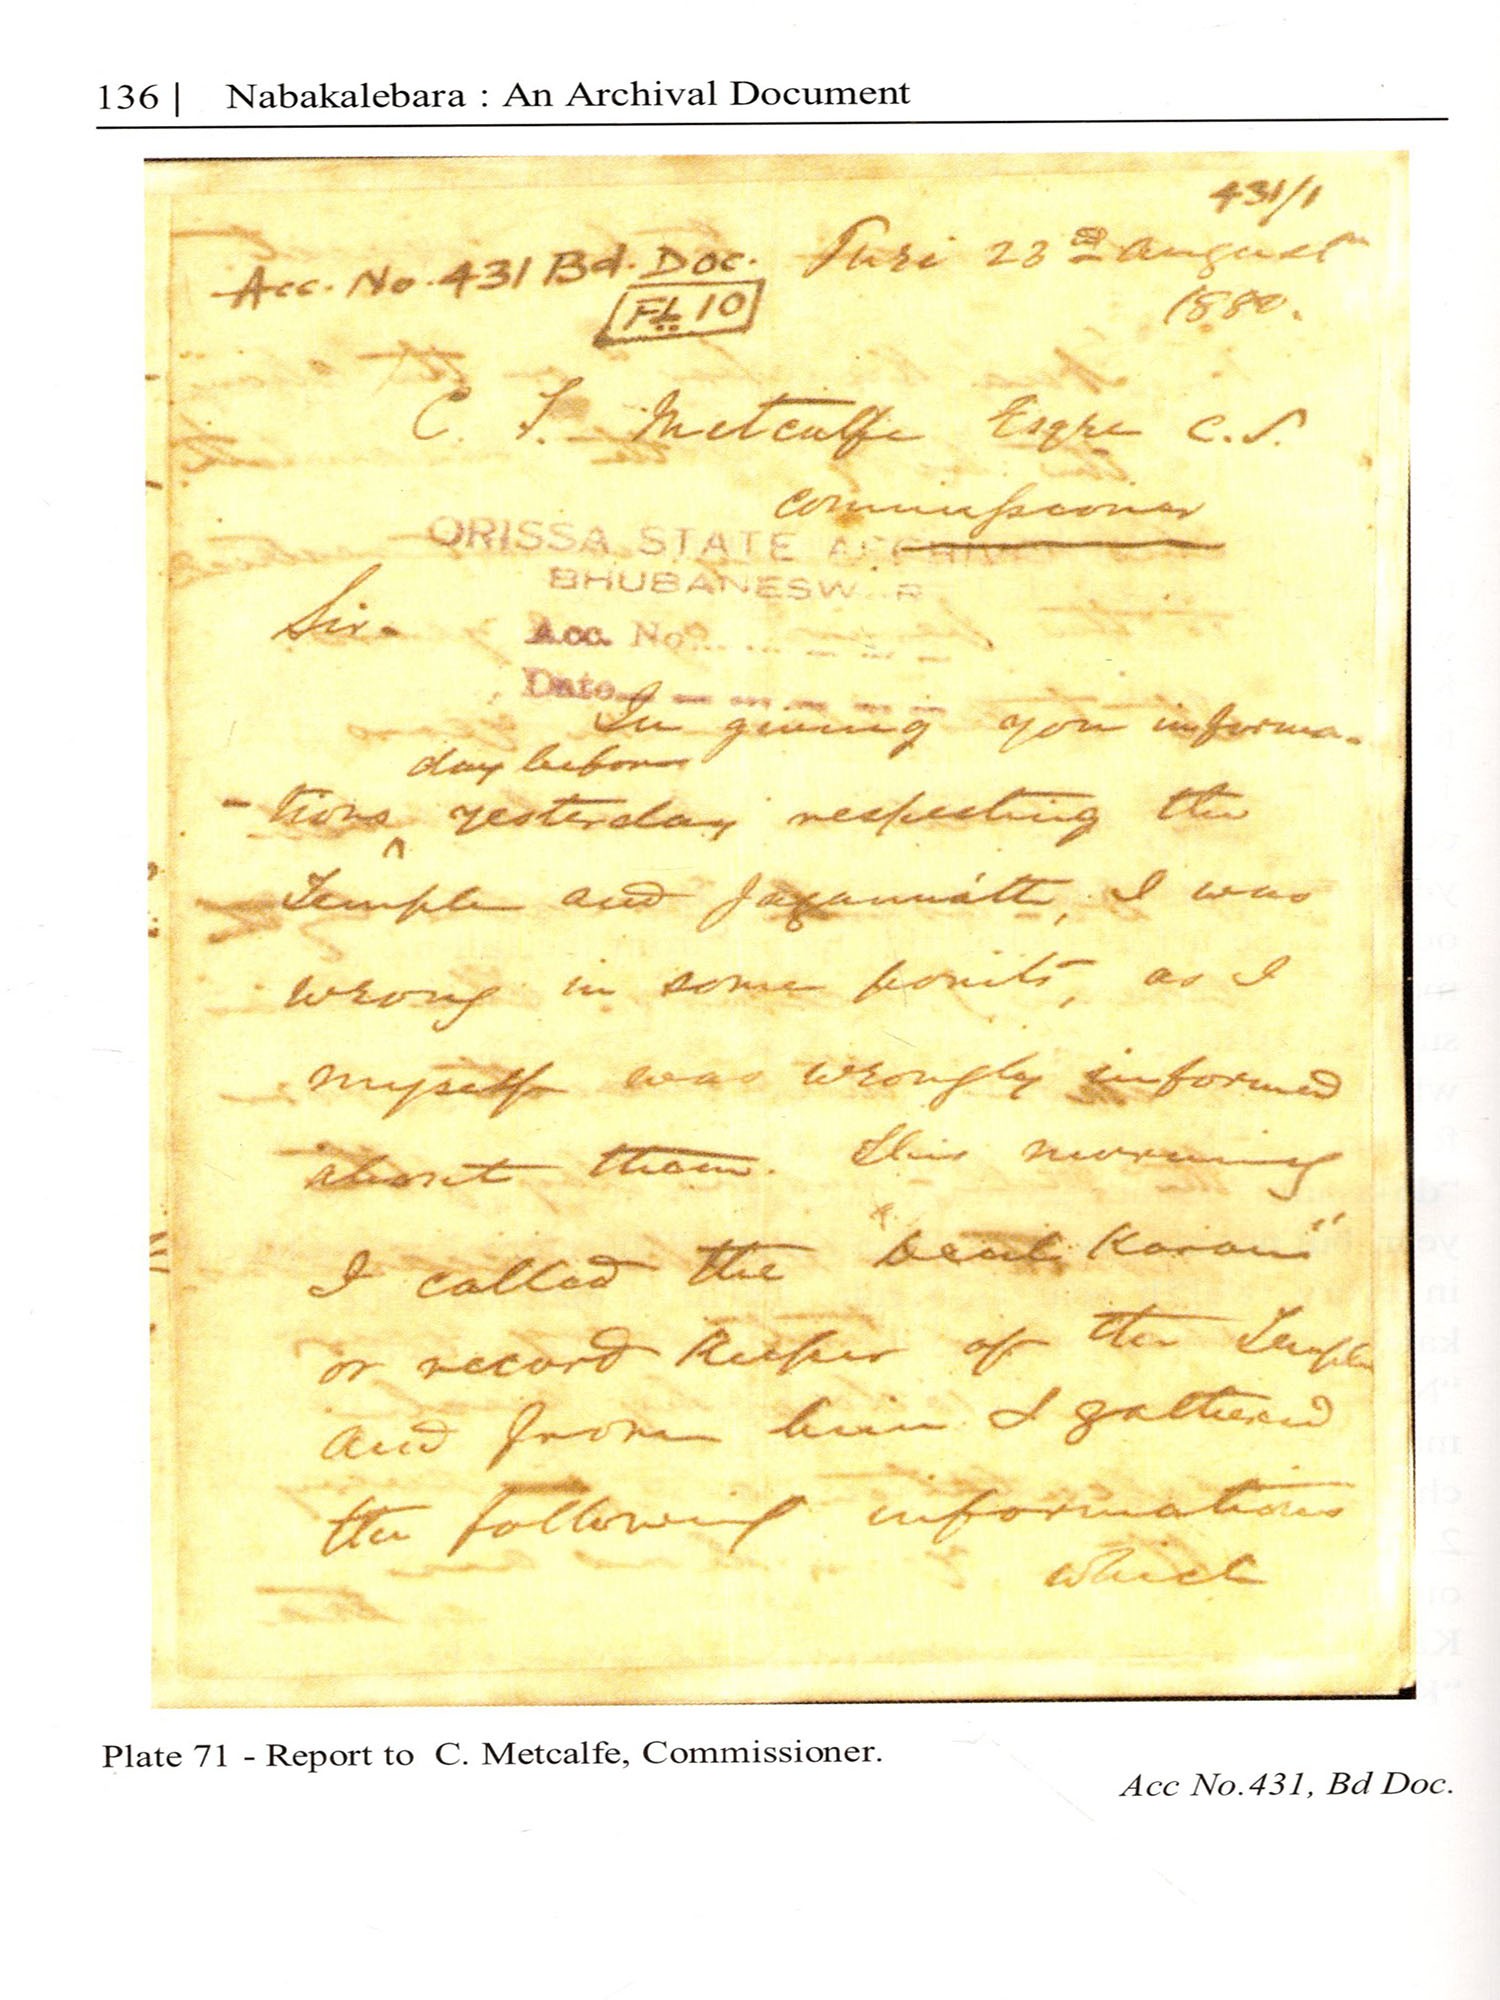 136 | Nabakalebara : An Archival Document
431/1
Acc. No. 431 Bd. Doc. Puri 23rd August
FL 10
1880.
C. T. Metcalfe Esqre C.S.
Commissioner
ORISSA STATE
BHUBANESW R
Sir.
Acc. No.
Date
In giving you informa-
day before
-tions ^ yesterday respecting the
Temple and Jagannath, I was
wrong in some points, as I
myself was wrongly informed
about them. This morning
I called the " Karan"
or record Keeper of the Temple
and from him I gathered
the following informations
which
Plate 71 - Report to C. Metcalfe, Commissioner.
Acc No.431, Bd Doc.